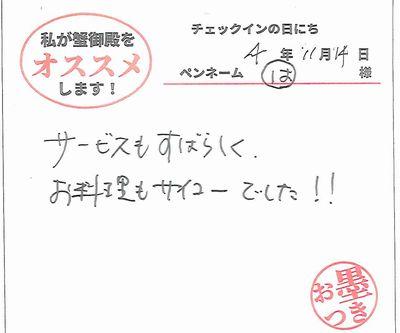 私が蟹御殿を
オススメ
します！
チェックインの日にち
4年11月14日
ペンネーム は 様
サービスもすばらしく、
お料理もサイコーでした！！
お墨
つき